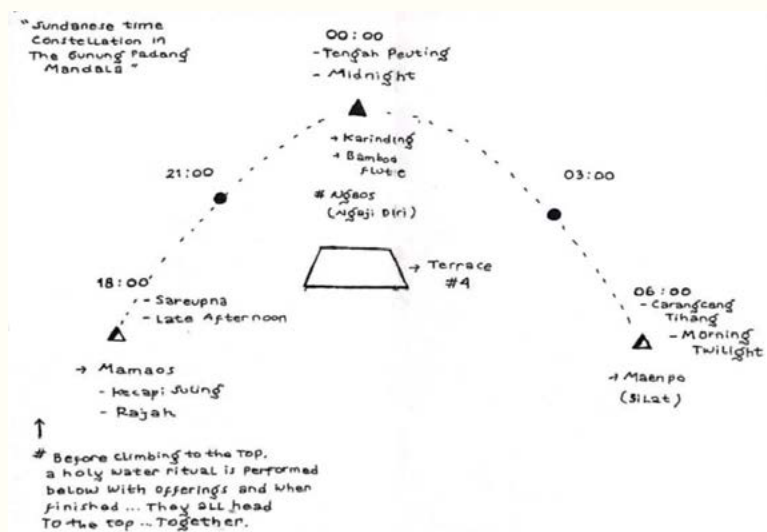 "Sundanese time
Constellation in
The Gunung Padang
Mandala"
00:00
- Tengah Peuting
- Midnight
→ Karinding
→ Bamboo
Flute
# Ngaos
(Ngaji Diri)
21:00
03:00
→ Terrace
#4
18:00'
- Sareupna
- Late Afternoon
→ Mamaos
- Kecapi Suling
- Rajah
06:00
- Carangcang
Tihang
- Morning
Twilight
→ Maenpo
(Silat)
# Before climbing to the Top.
a holy water ritual is performed
below with offerings and when
finished... They all head
To the top... Together.